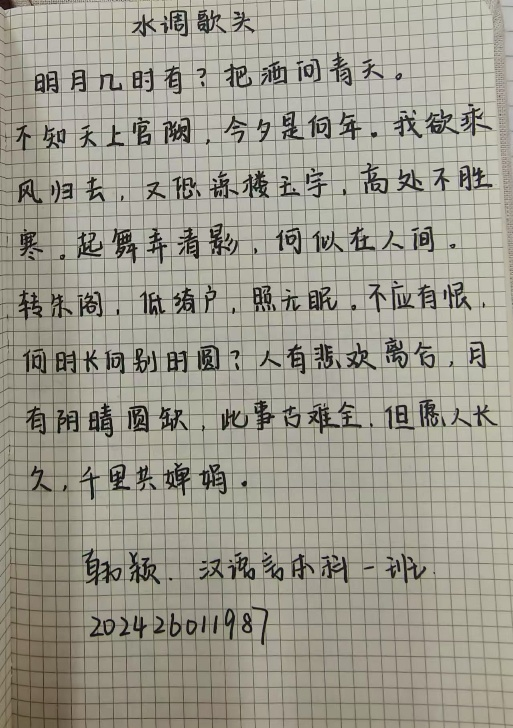 水调歌头
明月几时有？把酒问青天。
不知天上宫阙，今夕是何年。我欲乘
风归去，又恐琼楼玉宇，高处不胜
寒。起舞弄清影，何似在人间。
转朱阁，低绮户，照无眠。不应有恨，
何时长向别时圆？人有悲欢离合，月
有阴晴圆缺，此事古难全，但愿人长
久，千里共婵娟。
韩颖．汉语言本科一班．
202426011987